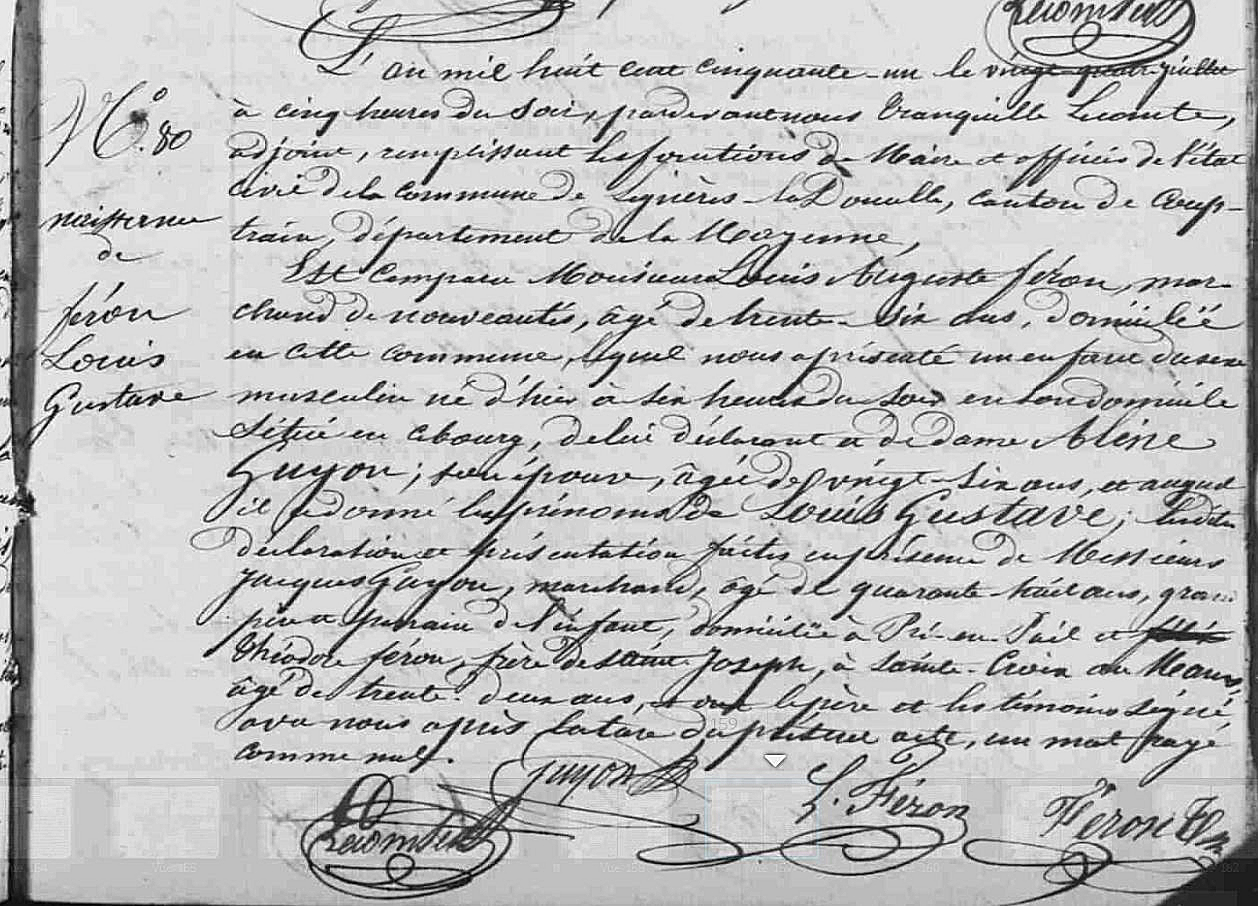 Lecomte
L'an mil huit cent cinquante-un le vingt quatre juillet
N.° 80
à cinq heures du soir, pardevant nous Tranquille Lecomte,
adjoint, remplissant les fonctions de Maire et officier de l'état
civil de la commune de Lignères-la-Doucelle, canton de Coup-
train, département de la Mayenne,
naissance
de
féron
Louis
Gustave
Est comparu Monsieur Louis Auguste féron, mar-
chand de nouveautés, âgé de trente-six ans, domicilié
en cette commune, lequel nous a présenté un enfant du sexe
masculin né d'hier à six heures du soir en son domicile
situé en ce bourg, de lui déclarant et de dame Aline
Guyon, son épouse, âgée de vingt-six ans, et auquel
il a donné les prénoms de Louis Gustave; lesdites
déclaration et présentation faites en présence de Messieurs
Jacques Guyon, marchand, âgé de quarante-huit ans, grand
père et parrain de l'enfant, domicilié à Pré-en-Pail et
théodore féron, frère de saint Joseph, à Sainte-Croix au Mans,
âgé de trente-deux ans, et ont le père et les témoins signé
avec nous après lecture du présent acte, un mot rayé
comme nul.
Guyon
L. Féron
Féron Th
Lecomte
159